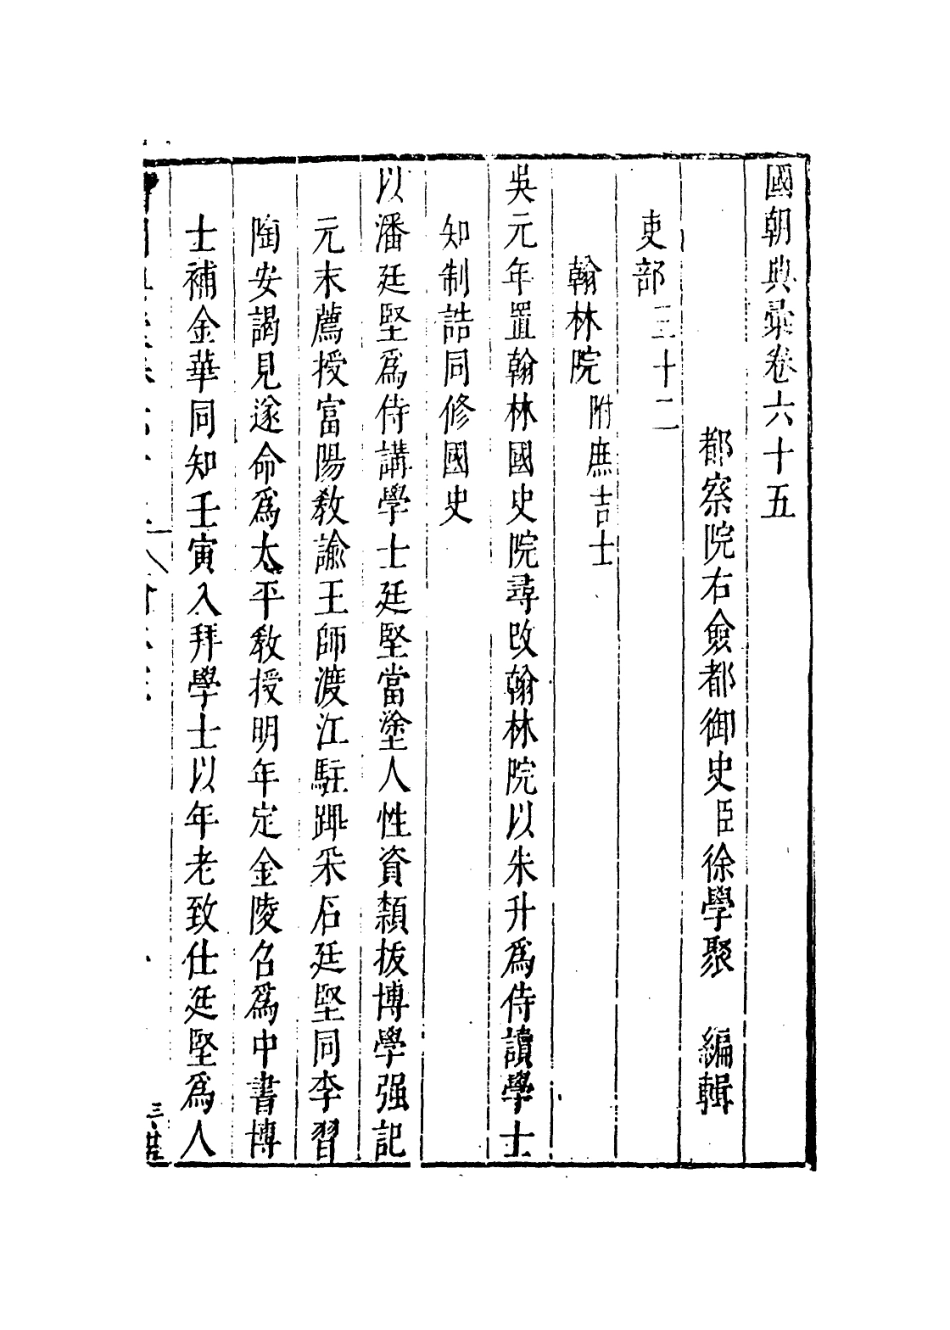 國朝典彙卷六十五
都察院右僉都御史臣徐學聚 編輯
吏部三十二
翰林院附庶吉士
吳元年置翰林國史院尋改翰林院以朱升爲侍讀學士
知制誥同修國史
以潘廷堅爲侍講學士廷堅當塗人性資頴拔博學强記
元末薦授富陽敎諭王師渡江駐蹕采石廷堅同李習
陶安謁見遂命爲太平敎授明年定金陵召爲中書博
士補金華同知壬寅入拜學士以年老致仕廷堅爲人